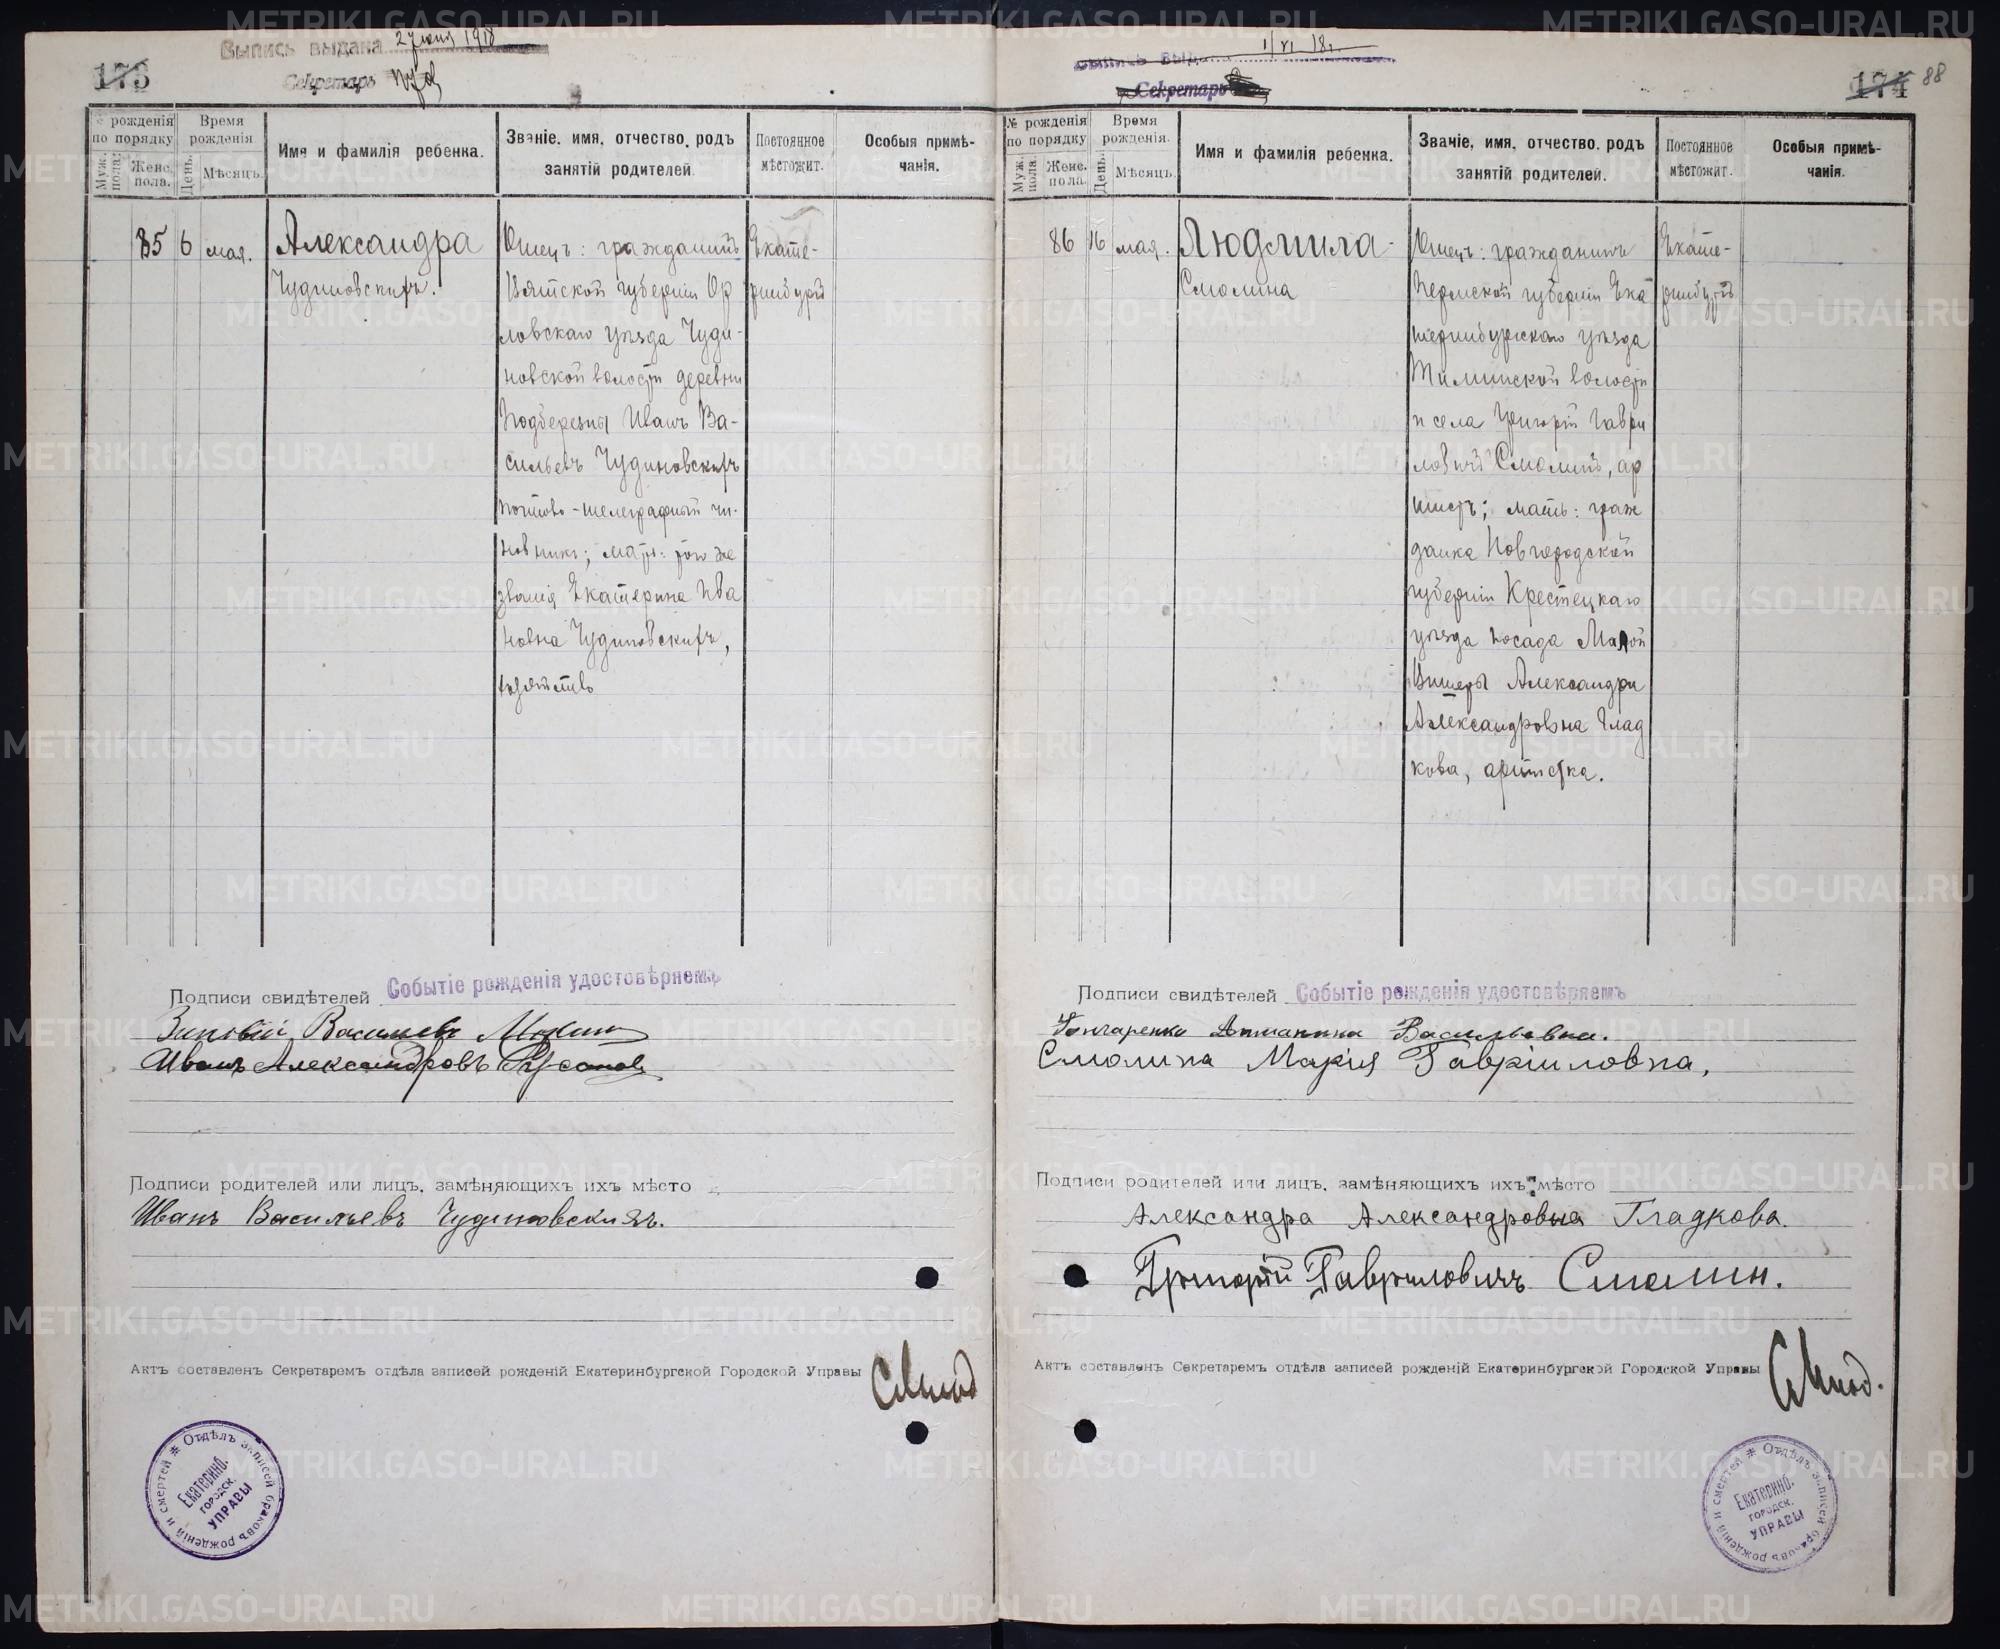 173
Выпись выдана 2 июня 1918
Секретарь
№ рожденія по порядку
Муж. пола.
Женс. пола.
Время рожденія
День.
Мѣсяцъ.
Имя и фамилія ребенка.
Званіе, имя, отчество, родъ занятій родителей.
Постоянное мѣстожит.
Особыя примѣ-
чанія.
85 6 мая.
Александра
Чудиновскихъ.
Отецъ: гражданинъ
Вятской губерніи Ор
ловскаго уѣзда Чуди-
новской волости деревни
Подберезны Иванъ Ва-
сильевъ Чудиновскихъ
почтово-телеграфный чи-
новникъ; мать: того же
званія Екатерина Ива
новна Чудиновскихъ,
Екате-
ринбургъ
Подписи свидѣтелей Событіе рожденія удостовѣряемъ
Зиновій Васильевъ
Иванъ Александровъ
Подписи родителей или лицъ, замѣняющихъ ихъ мѣсто
Иванъ Васильевъ Чудиновскихъ.
Актъ составленъ Секретаремъ отдѣла записей рожденій Екатеринбургской Городской Управы
Отдѣлъ записей браковъ рожденій и смертей
Екатеринб.
ГОРОДСК.
УПРАВЫ
1/VI 18г.
Секретарь
174 88
№ рожденія по порядку
Муж. пола.
Женс. пола.
Время рожденія.
День.
Мѣсяцъ.
Имя и фамилія ребенка.
Званіе, имя, отчество, родъ занятій родителей.
Постоянное мѣстожит.
Особыя примѣ-
чанія.
86 16 мая.
Людмила
Смолина
Отецъ: гражданинъ
Пермской губерніи Ека
теринбургскаго уѣзда
волости
и села Григорій Гаври
ловичъ Смолинъ, ар
тистъ; мать: граж
данка Новгородской
губерніи Крестецкаго
уѣзда посада Малой
Вишеры Александра
Александровна Глад
кова, артистка.
Екате-
ринбургъ
Подписи свидѣтелей Событіе рожденія удостовѣряемъ
Гончаренко Васильевна.
Смолина Марія Гавріиловна,
Подписи родителей или лицъ, замѣняющихъ ихъ мѣсто
Александра Александровна Гладкова.
Григорій Гавриловичъ Смолин.
Актъ составленъ Секретаремъ отдѣла записей рожденій Екатеринбургской Городской Управы
Отдѣлъ записей браковъ рожденій и смертей
Екатеринб.
ГОРОДСК.
УПРАВЫ
METRIKI.GASO-URAL.RU